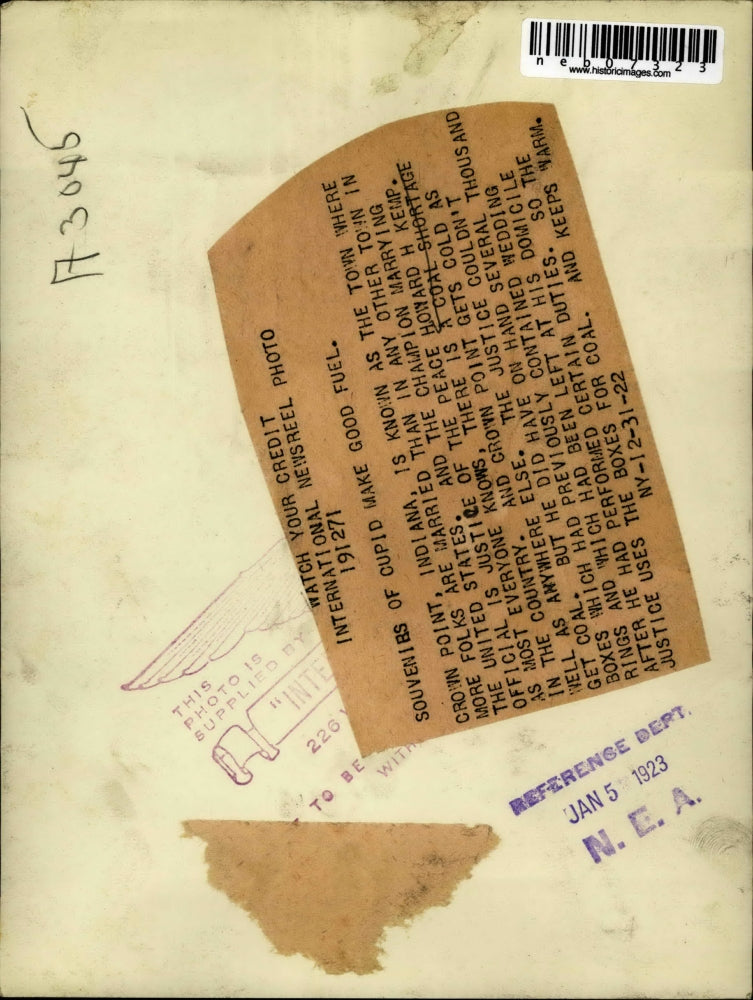 neb07323
www.historicimages.com
A3045
WATCH YOUR CREDIT
INTERNATIONAL NEWSREEL PHOTO
191271
SOUVENIBS OF CUPID MAKE GOOD FUEL.
CROWN POINT, INDIANA, IS KNOWN AS THE TOWN WHERE
MORE FOLKS ARE MARRIED THAN IN ANY OTHER TOWN IN
THE UNITED STATES. AND THE CHAMPION MARRYING
OFFICIAL IS JUSTICE OF THE PEACE HOWARD H KEMP.
AS MOST EVERYONE KNOWS, THERE IS A COAL SHORTAGE
IN THE COUNTRY. AND CROWN POINT GETS COLD AS
WELL AS ANYWHERE ELSE. THE JUSTICE COULDN'T
GET COAL. BUT HE DID HAVE ON HAND SEVERAL THOUSAND
BOXES WHICH HAD PREVIOUSLY CONTAINED WEDDING
RINGS AND WHICH HAD BEEN LEFT AT HIS DOMICILE
AFTER HE HAD PERFORMED CERTAIN DUTIES. SO THE
JUSTICE USES THE BOXES FOR COAL. AND KEEPS WARM.
NY-12-31-22
THIS
PHOTO IS
SUPPLIED BY
"INTE
226
TO BE
WITH
REFERENCE DEPT.
JAN 5 1923
N. E. A.